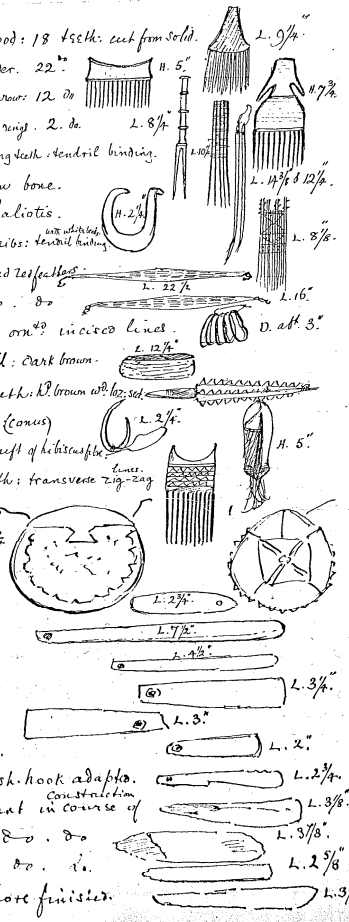 ood: 18 teeth: cut from solid. L. 9 1/4"
er. 22 do H. 5"
12 do H. 7 3/4
rings. 2. do. L. 8 1/4" L. 10 1/2"
ng teeth: tendril binding.
L. 14 3/8 & 12 1/4"
w bone.
aliotis. H. 2 1/4"
with white beads.
ibs: tendril binding. L. 8 7/8"
ed red feathers.
L. 22 1/2
o. do L. 16"
orntd. incised lines. D. abt. 3"
L. 12 1/4"
: dark brown.
eth: hd. brown wd. loz: sect.
(conus) L. 2 1/4" H. 5"
uft of hibiscus fibre.
lines.
h: transverse zig-zag
L. 2 3/4"
L. 7 1/2"
L. 4 1/2"
L. 3 1/4"
L. 3"
L. 2"
sh. hook adapted. L. 2 3/4.
Construction
nt in course of L. 3 1/8"
do. do L. 3 7/8"
do. Lo. L. 2 5/8"
ore finished. L. 3